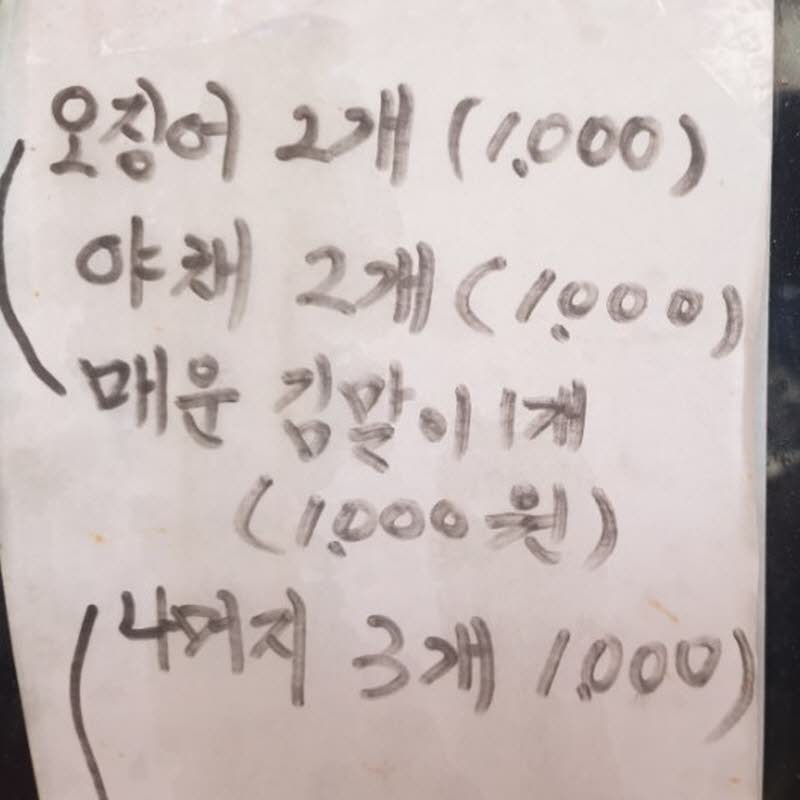 오징어 2개 (1,000)
야채 2개 (1,000)
매운 김말이 1개
(1,000원)
(나머지 3개 1,000)